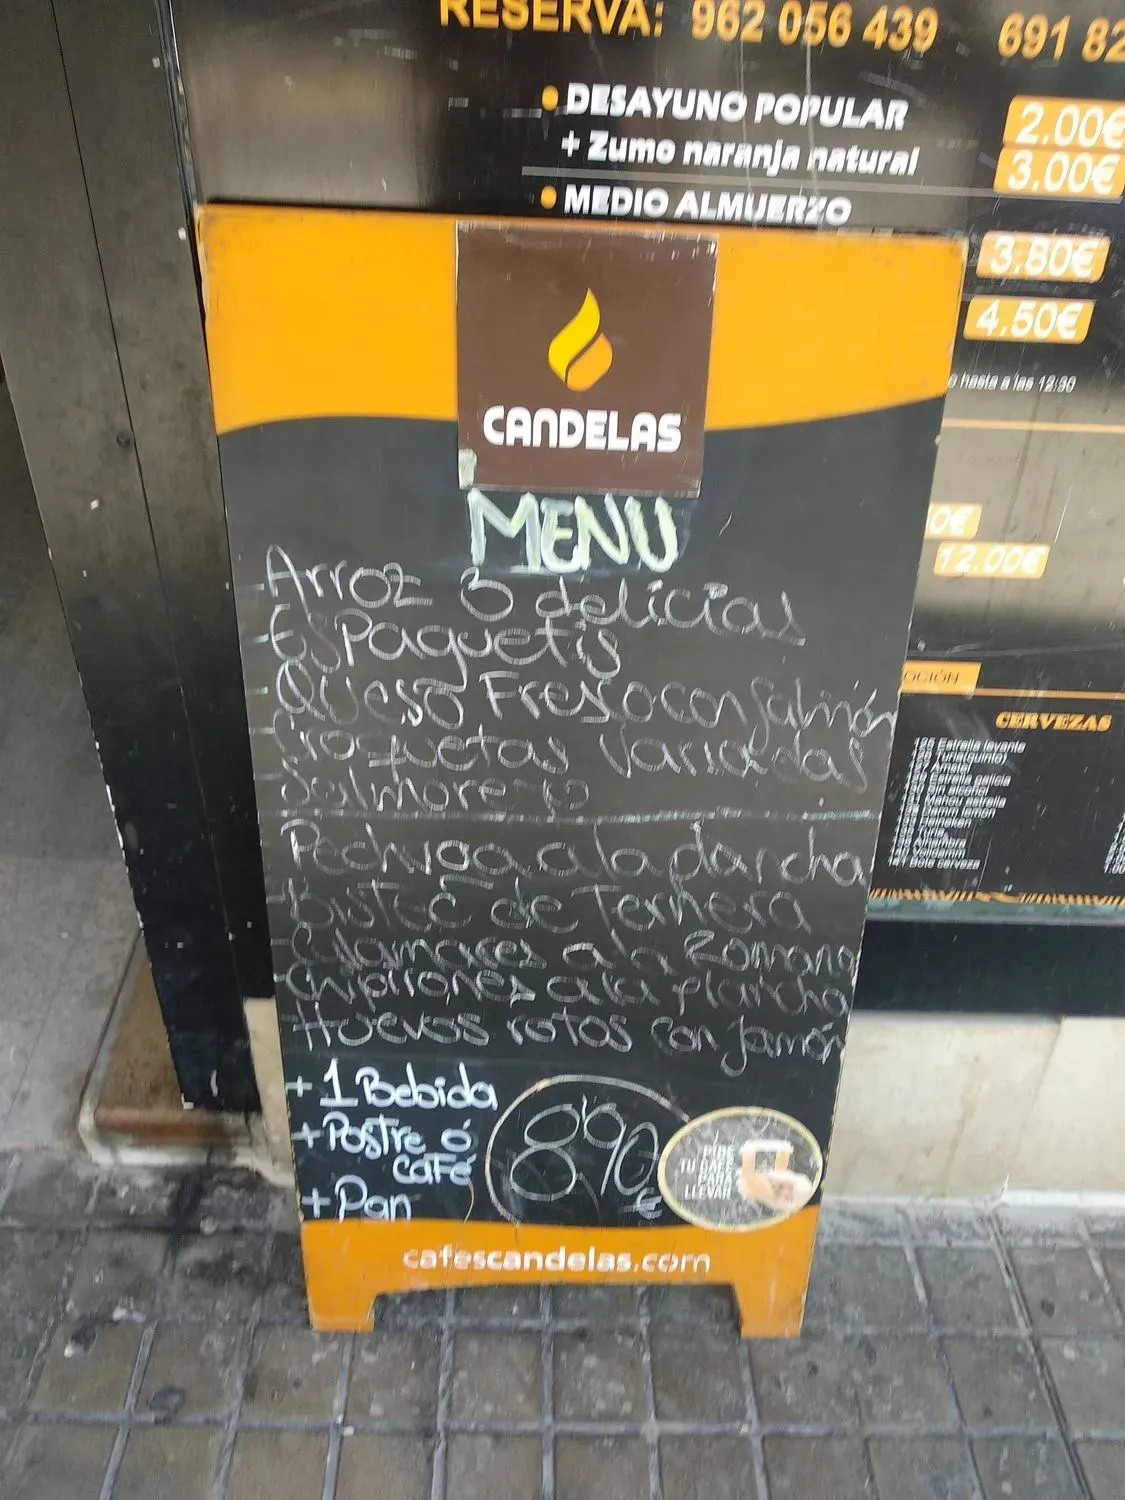 RESERVA: 962 056 439 691 82
DESAYUNO POPULAR 2.00€
+ Zumo naranja natural 3,00€
MEDIO ALMUERZO
3.80€
4,50€
o hasta a las 12:30
0€
12.00€
OCIÓN
CERVEZAS
Estrella levante
CANDELAS
MENU
-Arroz 3 delicias
-Espaguetis
-Queso Fresco con Salmón
-Croquetas Variadas
-Salmorejo
-Pechuga a la plancha
-Bistec de Ternera
-Calamares a la Romana
-Chipirones a la plancha
-Huevos rotos con Jamón
+ 1 Bebida
+ Postre ó
café
+ Pan
8'90€
PIDE
TU CAFÉ
PARA
LLEVAR
cafescandelas.com